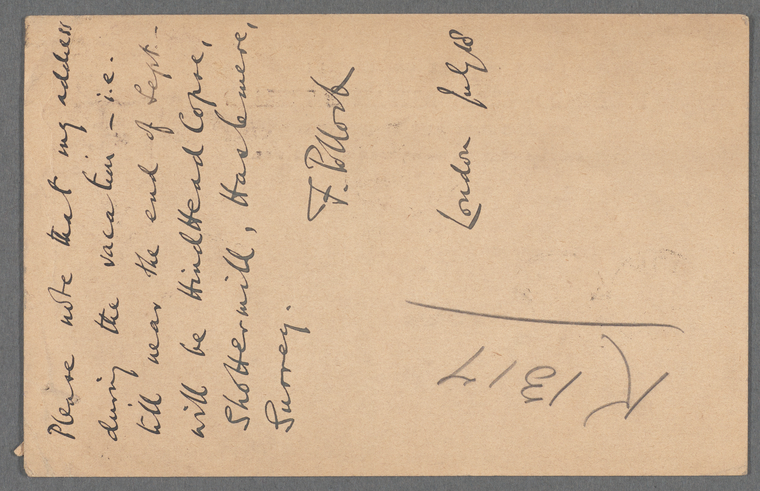 Please note that my address
during the vacation – i.e.
till near the end of Sept. –
will be HindHead Copse,
Shottermill, Haslemere,
Surrey.
F. Pollock
London July 18